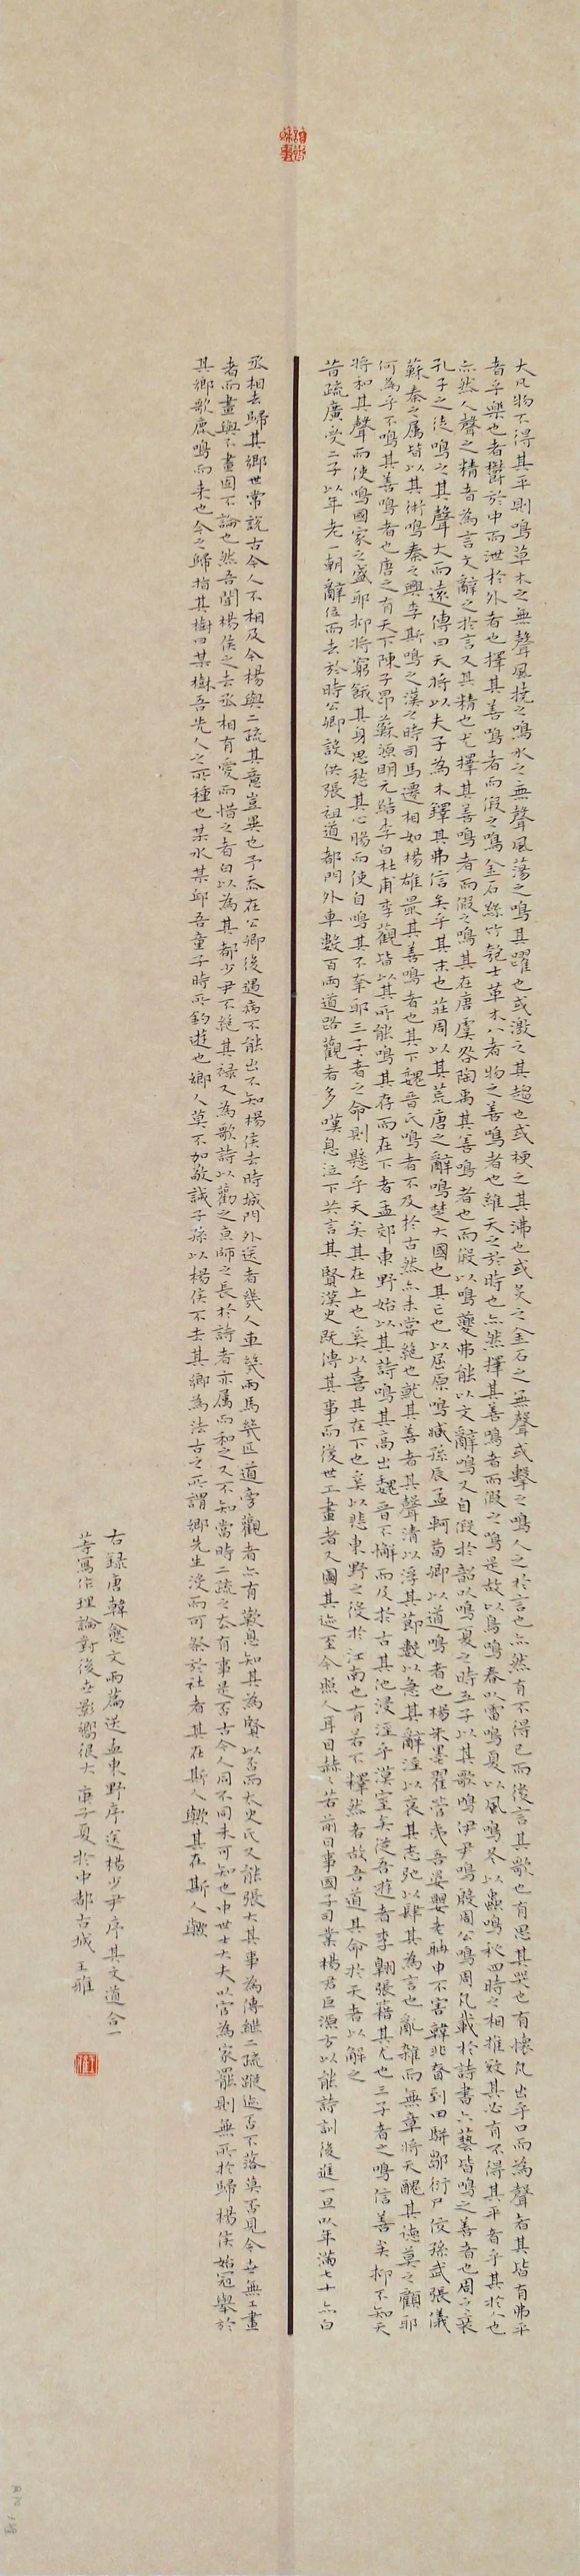 大凡物不得其平則鳴草木之無聲風撓之鳴水之無聲風蕩之鳴其躍也或激之其趨也或梗之其沸也或炙之金石之無聲或擊之鳴人之於言也亦然有不得已而後言其歌也有思其哭也有懷凡出乎口而為聲者其皆有弗平
者乎樂也者鬱於中而泄於外者也擇其善鳴者而假之鳴金石絲竹匏土革木八者物之善鳴者也維天之於時也亦然擇其善鳴者而假之鳴是故以鳥鳴春以雷鳴夏以風鳴冬以蟲鳴秋四時之相推敚其必有不得其平者乎其於人也
亦然人聲之精者為言文辭之於言又其精也尤擇其善鳴者而假之鳴其在唐虞咎陶禹其善鳴者也而假以鳴夔弗能以文辭鳴又自假於韶以鳴夏之時五子以其歌鳴伊尹鳴殷周公鳴周凡載於詩書六藝皆鳴之善者也周之衰
孔子之徒鳴之其聲大而遠傳曰天將以夫子為木鐸其弗信矣乎其末也莊周以其荒唐之辭鳴楚大國也其亡也以屈原鳴臧孫辰孟軻荀卿以道鳴者也楊朱墨翟管夷吾晏嬰老聃申不害韓非眘到田駢鄒衍尸佼孫武張儀
蘇秦之屬皆以其術鳴秦之興李斯鳴之漢之時司馬遷相如楊雄最其善鳴者也其下魏晉氏鳴者不及於古然亦未嘗絕也就其善者其聲清以浮其節數以急其辭淫以哀其志弛以肆其為言也亂雜而無章將天醜其德莫之顧耶
何為乎不鳴其善鳴者也唐之有天下陳子昂蘇源明元結李白杜甫李觀皆以其所能鳴其存而在下者孟郊東野始以其詩鳴其高出魏晉不懈而及於古其他浸淫乎漢室矣從吾遊者李翱張籍其尤也三子者之鳴信善矣抑不知天
將和其聲而使鳴國家之盛耶抑將窮餓其身思愁其心腸而使自鳴其不幸耶三子者之命則懸乎天矣其在上也奚以喜其在下也奚以悲東野之役於江南也有若不釋然者故吾道其命於天者以解之
昔疏廣受二子以年老一朝辭位而去於時公卿設供張祖道都門外車數百兩道路觀者多嘆息泣下共言其賢漢史既傳其事而後世工畫者又圖其迹至今照人耳目赫〻若前日事國子司業楊君巨源方以能詩訓後進一旦以年滿七十亦白
丞相去歸其鄉世常說古今人不相及今楊與二疏其意豈異也予忝在公卿後遇病不能出不知楊侯去時城門外送者幾人車幾兩馬幾匹道旁觀者亦有歎息知其為賢以否而太史氏又能張大其事為傳繼二疏蹤迹否不落莫否見今世無工畫
者而畫與不畫固不論也然吾聞楊侯之去丞相有愛而惜之者白以為其都少尹不絕其祿又為歌詩以勸之京師之長於詩者亦屬而和之又不知當時二疏之去有事是否古今人同不同未可知也中世士大夫以官為家罷則無所於歸楊侯始冠舉於
其鄉歌鹿鳴而来也今之歸指其樹曰某樹吾先人之所種也某水某邱吾童子時所釣遊也鄉人莫不加敬誡子孫以楊侯不去其鄉為法古之所謂鄉先生沒而可祭於社者其在斯人歟其在斯人歟
右錄唐韓愈文兩篇送孟東野序送楊少尹序其文道合一
等寫作理論對後世影響很大 庚子夏於中都古城 王雅